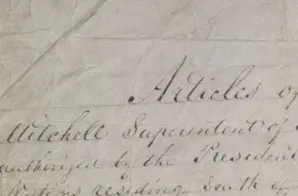 Articles of
Mitchell Superintent of
authorized by the President
Nations residing South of